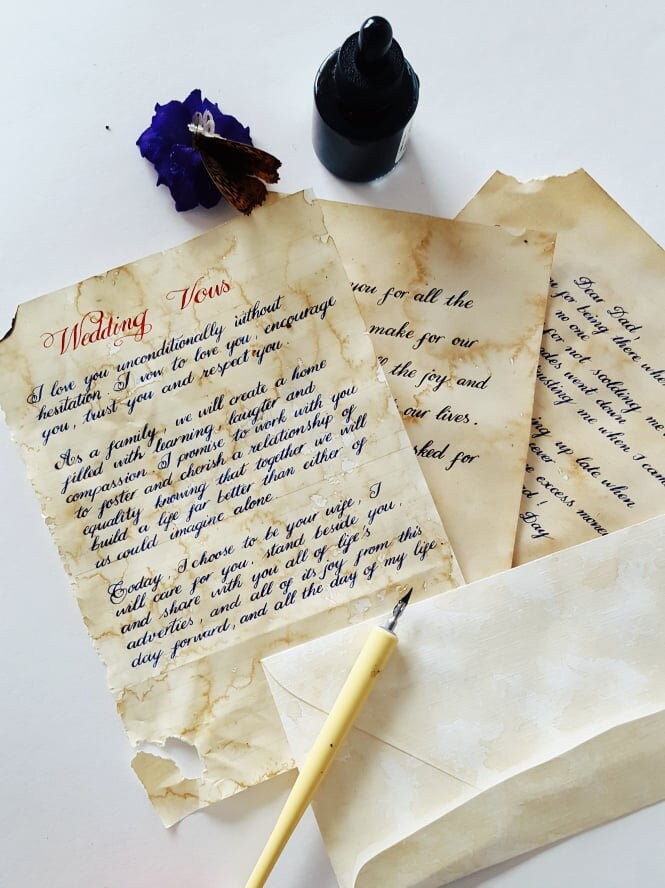 Wedding Vous
I love you unconditionally without
hesitation. I vow to love you, encourage
you, trust you and respect you.
As a family, we will create a home
filled with learning, laugter and
compassion. I promise to work with you
to foster and cherish a relationship of
equality knowing that together we will
build a life far better than either of
us could imagine alone.
Today, I choose to be your wife. I
will care for you, stand beside you,
and share with you all of life's
adverties, and all of its joy from this
day forward, and all the day of my life.
you for all the
make for our
the joy and
our lives.
for
Dear Dad,
for being there when
no one
for not scolding me
went down
me when I came
up late when
excess money
!
Day